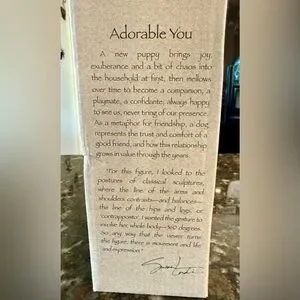 Adorable You
A new puppy brings joy,
exuberance and a bit of chaos into
the household at first, then mellows
over time to become a companion, a
playmate, a confidante; always happy
to see us, never tiring of our presence.
As a metaphor for friendship, a dog
represents the trust and comfort of a
good friend, and how this relationship
grows in value through the years.
"For this figure, I looked to the
postures of classical sculptures,
where the line of the arms and
shoulders contrasts—and balances—
the line of the hips and legs, or
'contrapposto'. I wanted the gesture to
involve her whole body—360 degrees.
So any way that the viewer turns
this figure, there is movement and life
and expression."